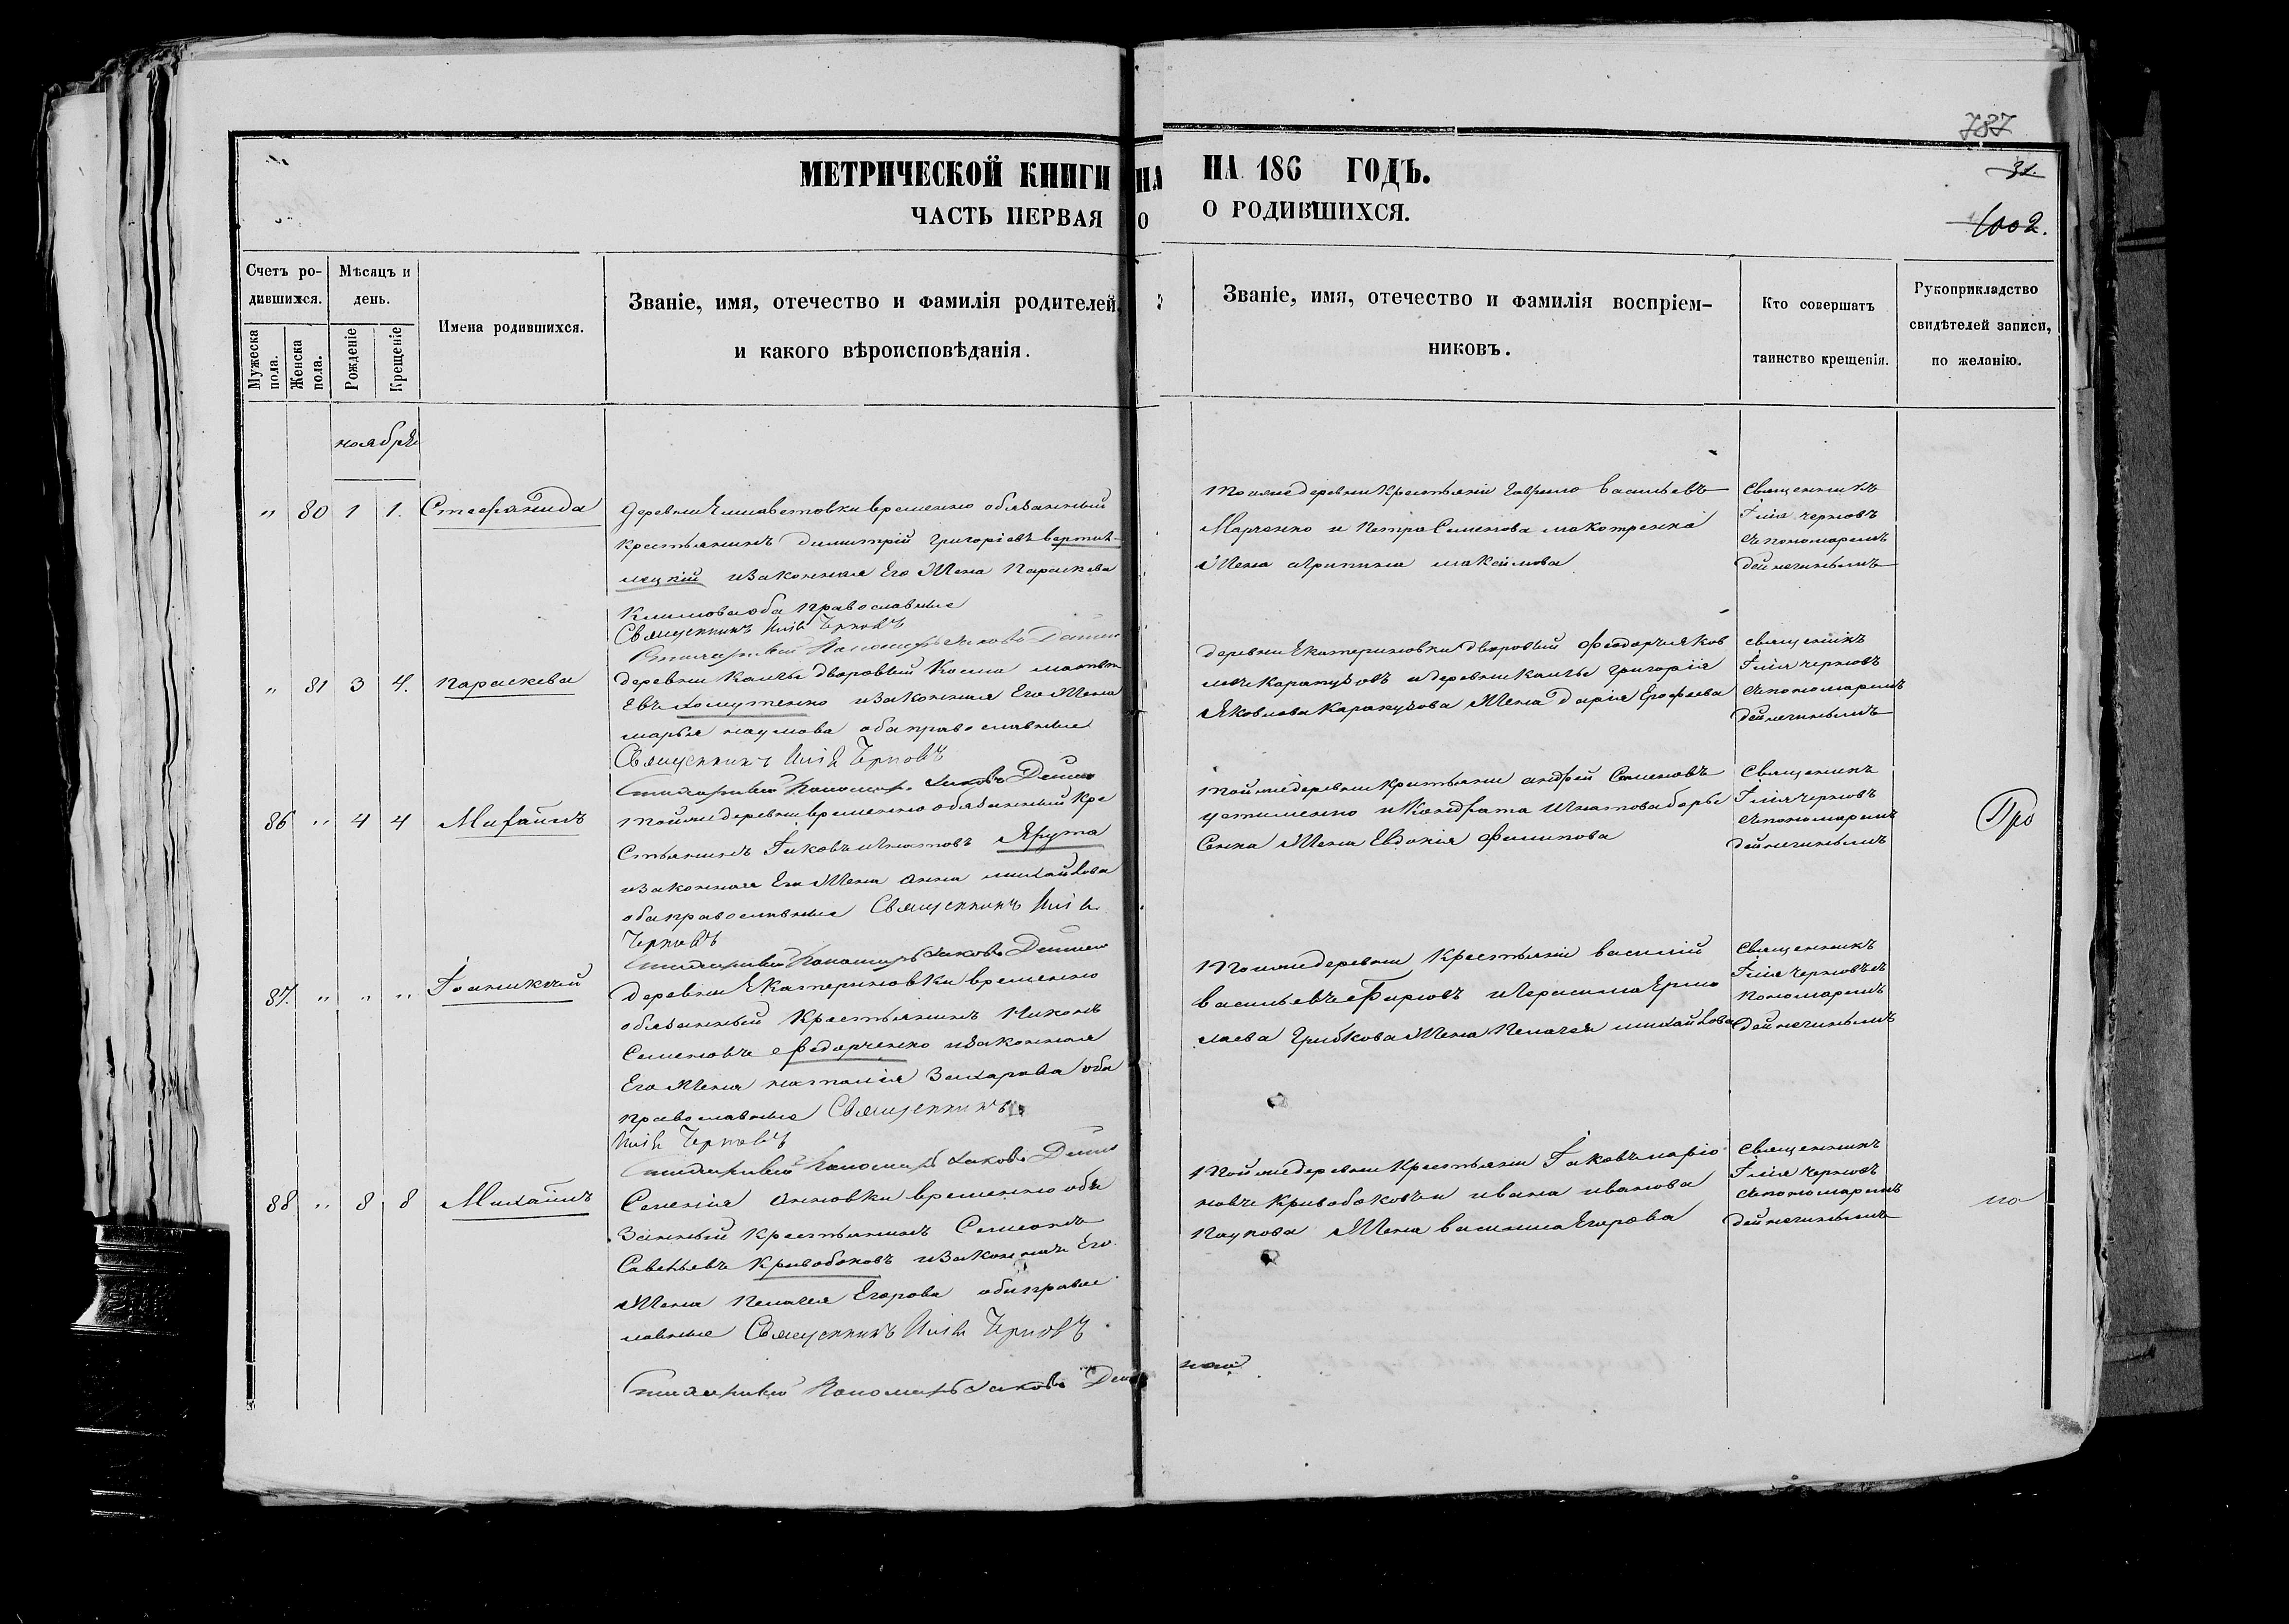 787
31.
1002.
МЕТРИЧЕСКОЙ КНИГИ НА
НА 186 ГОДЪ.
ЧАСТЬ ПЕРВАЯ О
О РОДИВШИХСЯ.
Счетъ ро-
дившихся.
Мужеска пола.
Женска пола.
Мѣсяцъ и
день.
Рожденіе
Крещеніе
Имена родившихся.
Званіе, имя, отечество и фамилія родителей,
и какого вѣроисповѣданія.
Званіе, имя, отечество и фамилія воспріем-
никовъ.
Кто совершатъ
таинство крещенія.
Рукоприкладство
свидѣтелей записи,
по желанію.
ноября
" 80 1 1. Стефанида
деревни Елисаветовки временно обязанный
крестьянинъ димитрій григоріевъ
изаконная Его Жена Параскева
Климова оба православные
Священникъ Илія Черновъ
Пономарь Іаковъ
Тояже деревни крестьяни Гаврило васильевъ
Марченко и Петра Семенова макотренка
Жена агрипина максимова
Священникъ
Iлія черновъ
спономаремъ
дейнечинымъ
" 81 3 4. параскева
деревни дворовый Косма
Евъ хомутенко изаконная Его Жена
марья наумова обаправославные
Священникъ Илія Черновъ
Пономарь Іаковъ
деревни Екатериновки дворовый Феодоръ Яков
левъ Карапузовъ идеревни григорія
Яковлева Карапузова Жена дарія Ерофеева
священикъ
Iлія черновъ
спономаремъ
дейнечинымъ
86 " 4 4 Михаилъ
тойжедеревни временно обязанный кре
стьянинъ Іаковъ игнатовъ Ярута
изаконная Его Жена анна михайлова
обаправославные Священникъ Илія
Черновъ
Пономарь Іаковъ
тойжедеревни крестьяни андрей Семеновъ
устименко иКондрата Игнатова
Сенка Жена Евдокія Филипова
Священикъ
Iлія черновъ
спономаремъ
дейнечинымъ
Про
87. " " " Iоаникій
деревни Екатериновки временно
обязанный Крестьянинъ Никонъ
Семеновъ Федорченко изаконная
Его Жена наталія Захарова оба
православные Священникъ
Илія Черновъ
Пономарь Іаковъ
Тояжедеревни Крестьяни василій
васильевъ Фирсовъ иГерасима Ермо
лаева Грибкова Жена Пелагея михайлова
Священникъ
Iлія черновъ съ
пономаремъ
дейнечинымъ
88 " 8 8 Михаилъ
Селенія Анновки временно обя
занный крестьянинъ Симеонъ
Савельевъ Кривобоковъ изаконная Его
Жена пелагея Егорова обаправос
лавные Священникъ Илія Черновъ
Пономарь Іаковъ
тойжедеревни Крестьяни Іаковъ
новъ Кривобоковъ и ивана иванова
Паукова Жена василиса Егорова
Священникъ
Iлія черновъ
спономаремъ
дейнечинымъ